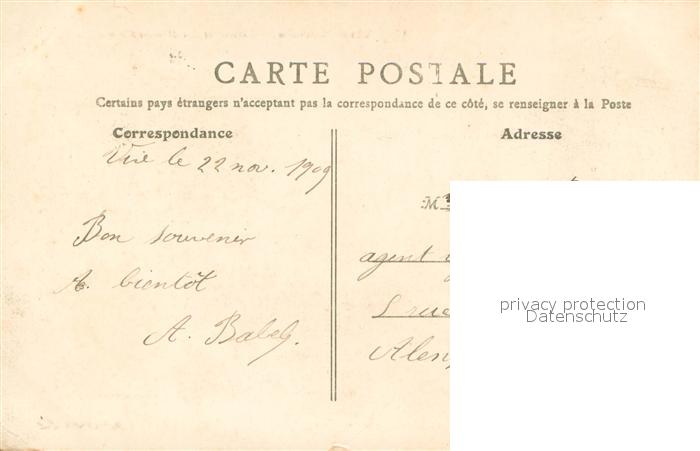 CARTE POSTALE
Certains pays étrangers n'acceptent pas la correspondance de ce côté, se renseigner à la Poste
Correspondance
Adresse
le 22 nov. 1909
Bon souvenir
A bientôt
A.
M
agent
rue
Alen
privacy protection
Datenschutz